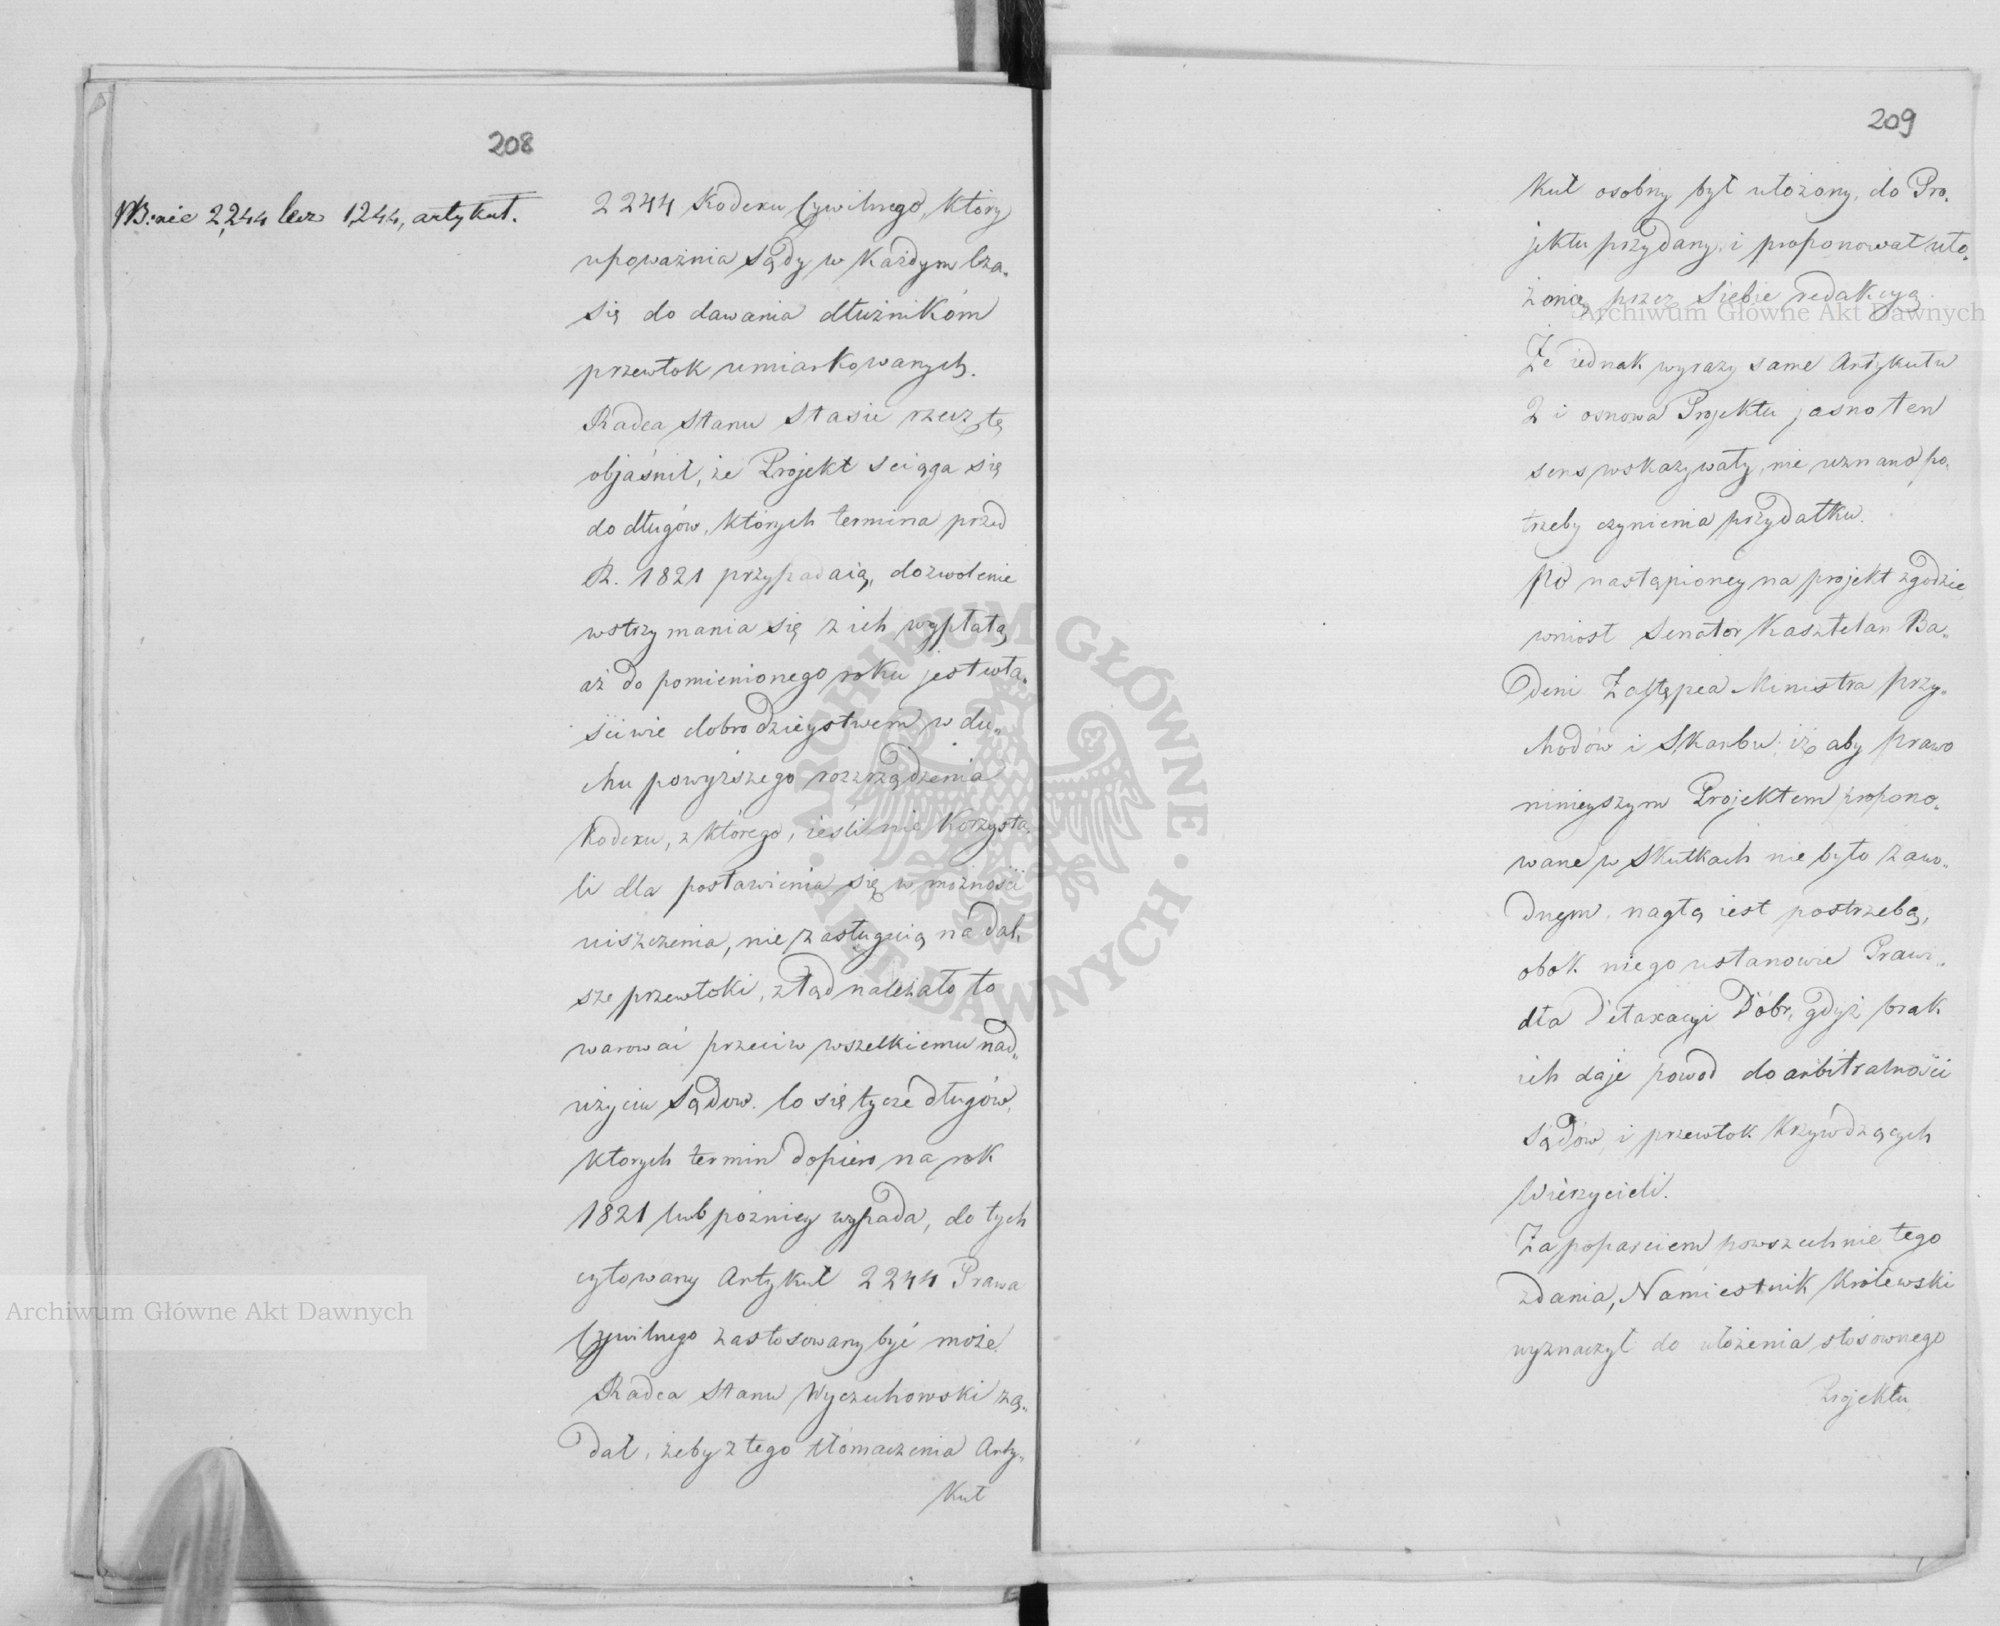 208
NB: nie 2,244 lecz 1,244, artykuł.
2244 Kodexu Cywilnego, który
upoważnia Sądy w każdym Cza„
się do dawania dłużnikóm
przewłok umiarkowanych.
Radca Stanu Stasic rzecz tę
objaśnił, że Projekt sciąga się
do długów, których termina przed
R. 1821 przypadaią, dozwolenie
wstrzymania się z ich wypłatą
aż do pomienionego roku jest wła„
sciwie dobrodzieystwem w du„
chu powyższego rozrządzenia
Kodexu, z którego, ieśli nie korzysta„
li dla postawienia się w możności
uiszczenia, nie zasługuią na dal„
sze przewłoki, ztąd należało to
warować przeciw wszelkiemu nad„
użyciu Sądow. Co się tycze długów,
ktorych termin dopiero na rok
1821 lub pozniey wypada, do tych
cytowany Artykuł 2244 Prawa
Cywilnego zastosowany być może.
Radca Stanu Wyczechowski żą„
dał, żeby z tego tłómaczenia Arty„
kuł
209
kuł osobny był ułożony, do Pro„
jektu przydany, i proponował uło„
żoną przez siebie redakcyą.
Że iednak wyrazy same Artykułu
2 i osnowa Projektu jasno ten
sens wskazywały, nie uznano po„
trzeby czynienia przydatku.
Po nastąpioney na projekt zgodzie
wniosł Senator Kasztelan Ba„
deni Zastępca Ministra przy„
chodów i Skarbu; iż aby prawo
ninieyszym Projektem propono„
wane w skutkach nie było zawo„
dnym, nagłą iest postrzebą,
obok niego ustanowić Prawi„
dła Detaxacyi Dóbr, gdyż brak
ich daje powod do arbitralności
Sądów, i przewłok krzywdzących
Wierzycieli.
Za poparciem powszechnie tego
zdania, Namiestnik Królewski
wyznaczył do ułożenia stósownego
Projektu
Archiwum Główne Akt Dawnych
Archiwum Główne Akt Dawnych
ARCHIWUM GŁÓWNE · AKT DAWNYCH ·